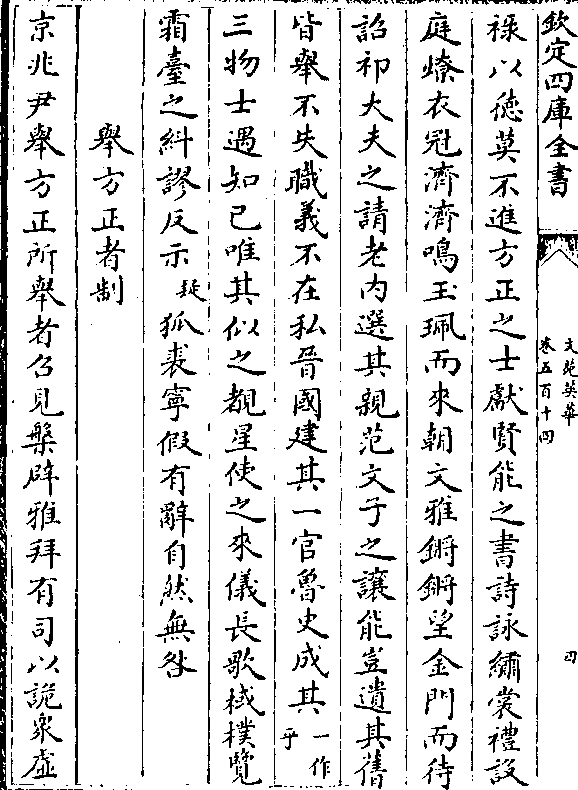 欽定四庫全書
文苑英華
卷五百十四
四
祿以德莫不進方正之士獻賢能之書詩詠繡裳禮設
庭燎衣冠濟濟鳴玉珮而來朝文雅鏘鏘望金門而待
詔祁大夫之請老内選其親范文子之讓能豈遺其舊
皆舉不失職義不在私晉國建其一官魯史成其一作乎
三物士遇知已唯其似之覩星使之來儀長歌棫樸覽
霜臺之糾謬反示疑狐裘寧假有辭自然無咎
舉方正者制
京兆尹舉方正所舉者召見槃辟雅拜有司以詭衆虛